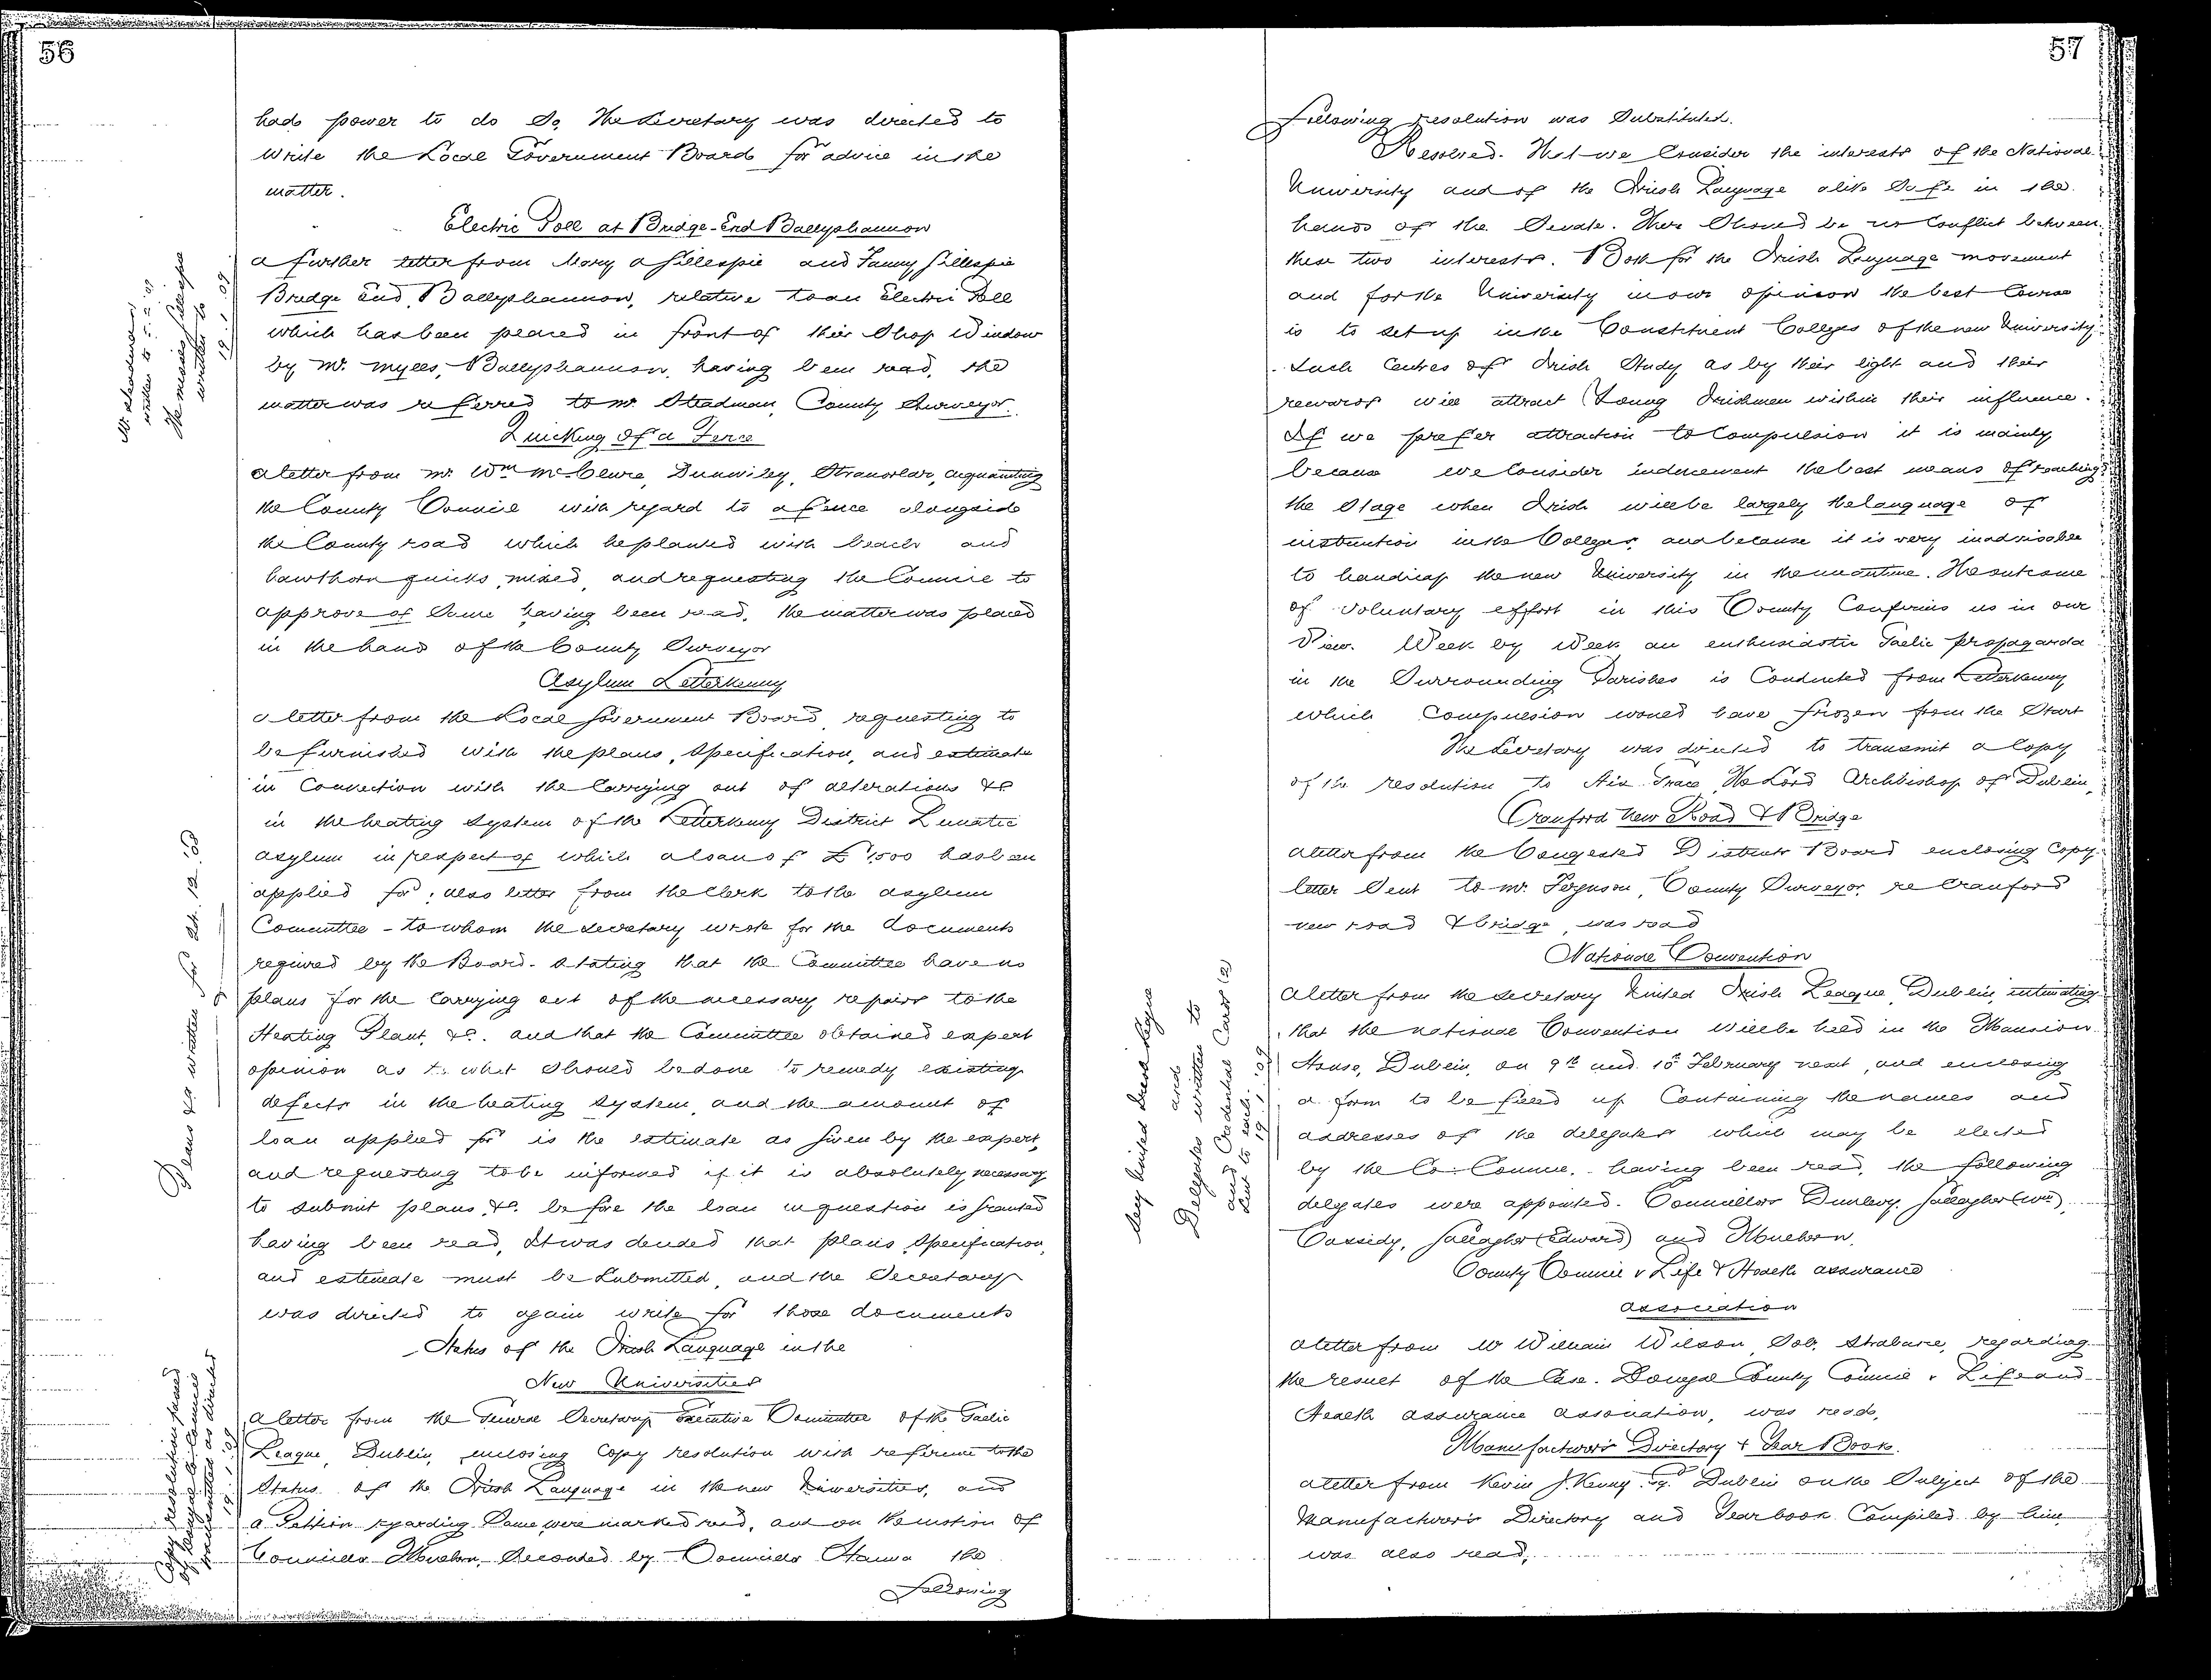 56
had power to do so, The Secretary was directed to
write the Local Government Board for advice in the
matter.
Electric Pole at Bridge-End Ballyshannon
A further letter from Mary A Gillespie and Fanny Gillespie
Bridge End, Ballyshannon, relative to an Electric Pole
which has been placed in front of their Shop Window
by Mr. Myles, Ballyshannon, having been read, the
matter was referred to Mr. Steadman, County Surveyor.
Quicking of a Fence
A letter from Mr. Wm McClure, Dunwiley, Stranorlar, acquainting
the County Council with regard to a fence alongside
the County road which he planted with beech and
hawthorn quicks mixed, and requesting the Council to
approve of same having been read, the matter was placed
in the hands of the County Surveyor
Asylum Letterkenny
A letter from the Local Government Board requesting to
be furnished with the plans, Specification, and estimate
in Connection with the Carrying out of alterations &c
in the heating system of the Letterkenny District Lunatic
Asylum in respect of which a loan of £1,500 has been
applied for; also letter from the Clerk to the Asylum
Committee - to whom the Secretary wrote for the documents
required by the Board - Stating that the Committee have no
plans for the Carrying out of the necessary repairs to the
Heating Plant, &c. and that the Committee obtained expert
opinion as to what should be done to remedy existing
defects in the heating system, and the amount of
loan applied for is the estimate as given by the expert,
and requesting to be informed if it is absolutely necessary
to submit plans, &c. before the loan in question is granted
having been read, it was decided that plans, Specification,
and estimate must be Submitted, and the Secretary
was directed to again write for those documents
Status of the Irish Language in the
New Universities
A letter from the General Secretary Executive Committee of the Gaelic
League, Dublin, enclosing Copy resolution with reference to the
Status of the Irish Language in the new Universities, and
a Petition regarding Same were marked read, and on the motion of
Councillor Seconded by Councillor the
Following
Mr Steadman
written to
The misses Gillespie
written to
19. 1. 09
Plans &c written for 24. 12. 08
Copy resolution
as directed
57
Following resolution was Substituted.
Resolved. That we Consider the interests of the National
University and of the Irish Language alike Safe in the
hands of the Senate. There Should be no Conflict between
these two interests. Both for the Irish Language movement
and for the University in our opinion the best Course
is to set up in the Constituent Colleges of the new University
Such Centres of Irish Study as by their light and their
rewards will attract Young Irishmen within their influence.
If we prefer attraction to Compulsion it is mainly
because we Consider inducement the best means of reaching
the Stage when Irish will be largely the language of
instruction in the Colleges, and because it is very inadvisable
to handicap the new University in the meantime. The outcome
of Voluntary effort in this County Confirms us in our
View. Week by Week an enthusiastic Gaelic propaganda
in the Surrounding Parishes is Conducted from Letterkenny
which Compulsion would have frozen from the Start
The Secretary was directed to transmit a Copy
of the resolution to His Grace The Lord Archbishop of Dublin,
Cranford New Road & Bridge
A letter from the Congested Districts Board enclosing Copy
letter Sent to Mr. Ferguson, County Surveyor, re Cranford
new road & bridge, was read
National Convention
A letter from the Secretary United Irish League, Dublin, intimating
that the national Convention will be held in the Mansion
House, Dublin, on 9th and 10th February next, and enclosing
a form to be filled up Containing the names and
addresses of the delegates which may be elected
by the Co. Council. having been read, the following
delegates were appointed. Councillors Dunlevy, Gallagher (Wm),
Cassidy, Gallagher (Edward) and
County Council v Life & Health Assurance
Association
A letter from Mr William Wilson, Sol, Strabane, regarding
the result of the Case. Donegal County Council v. Life and
Health Assurance Association, was read,
Manufacturers Directory & Year Book.
A letter from Kevin J. Kenny Esq. Dublin on the Subject of the
Manufacturers Directory and Yearbook Compiled by him
was also read,
Secy United Irish League
and
Delegates written to
and Credential Cards (2)
sent to each.
19. 1. 09